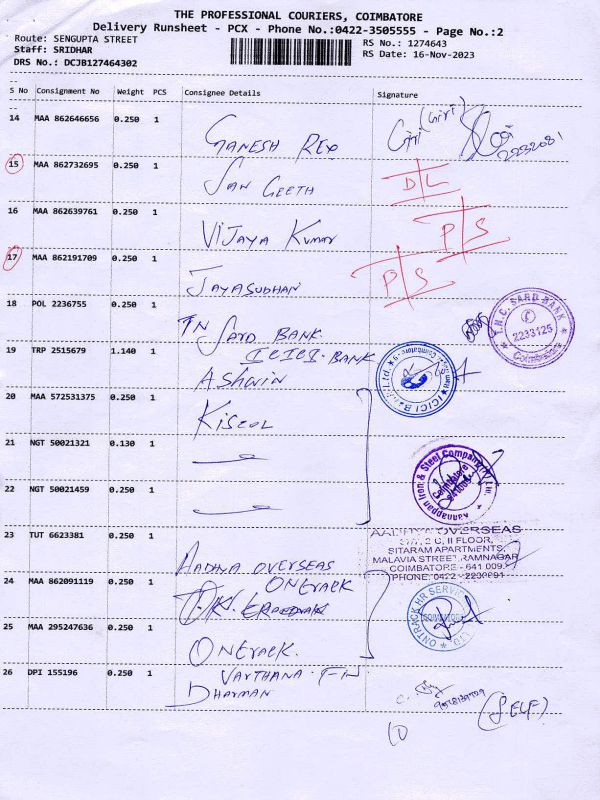 THE PROFESSIONAL COURIERS, COIMBATORE
Delivery Runsheet - PCX - Phone No.:0422-3505555 - Page No.:2
Route: SENGUPTA STREET
RS No.: 1274643
Staff: SRIDHAR
RS Date: 16-Nov-2023
DRS No.: DCJB127464302
S No Consignment No Weight PCS Consignee Details Signature
14 MAA 862646656 0.250 1 GANESH REX Giri (Giri)
15 MAA 862732695 0.250 1 SAN GEETH D/L
16 MAA 862639761 0.250 1 VIJAYA KUMAR P/S
17 MAA 862191709 0.250 1 JAYASUDHAN P/S
18 POL 2236755 0.250 1 TN SARD BANK
T.N.C. SARD BANK
2233125
Coimbatore
ICICI BANK
19 TRP 2515679 1.140 1 AShwin
ICICI Bank Ltd.
20 MAA 572531375 0.250 1 KISCOL
21 NGT 50021321 0.130 1
Kannappan Iron & Steel Company (P) Ltd.
Coimbatore
22 NGT 50021459 0.250 1
23 TUT 6623381 0.250 1 AADHYA OVERSEAS
AADHYA OVERSEAS
II FLOOR,
SITARAM APARTMENTS,
MALAVIA STREET, RAMNAGAR
COIMBATORE - 641 009.
PHONE: 0422 -
24 MAA 862091119 0.250 1 ONERACK
ONTRACK HR SERVICES
COIMBATORE
25 MAA 295247636 0.250 1 ONERACK.
26 DPI 155196 0.250 1 VARTHANA FIN
DHARMAN
(SELF)
10